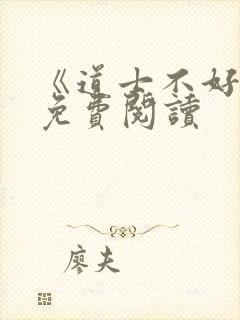 《道士不好
免費閱讀
廖夫